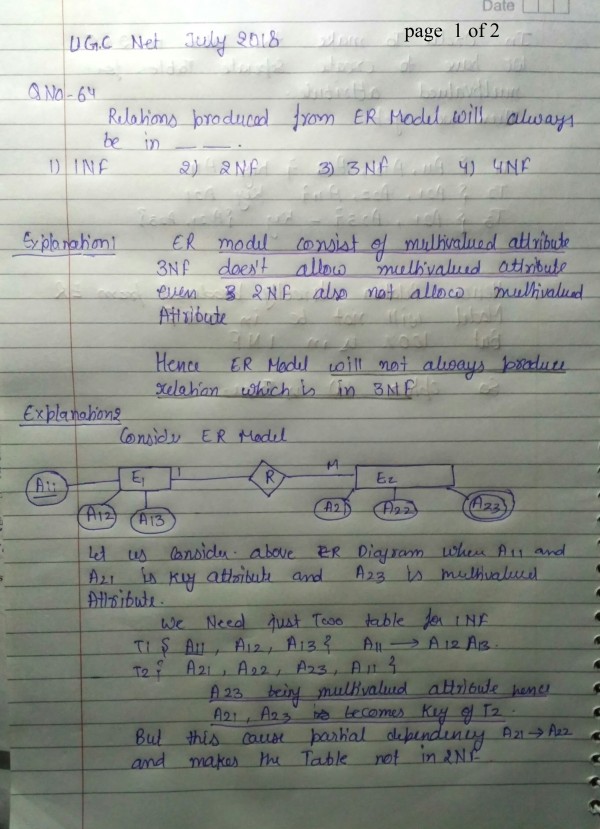 Date
page 1 of 2
UGC Net July 2018
QNo-64
Relations produced from ER Model will always
be in ___ ___.
1) 1NF 2) 2NF 3) 3NF 4) 4NF
Explanation1 ER model consist of multivalued attribute
3NF does't allow multivalued attribute
even 2NF also not allow multivalued
Attribute
Hence ER Model will not always produce
relation which is in 3NF
Explanation2
Consider ER Model
A11 E1 1 R M E2
A12 A13 A21 A22 A23
Let us Consider above ER Diagram when A11 and
A21 is key attribute and A23 is multivalued
Attribute.
We Need just Two table for 1NF
T1 { A11, A12, A13 } A11 → A12 A13.
T2 { A21, A22, A23, A11 }
A23 being multivalued attribute hence
A21, A23 becomes key of T2.
But this cause partial dependency A21 → A22
and makes the Table not in 2NF